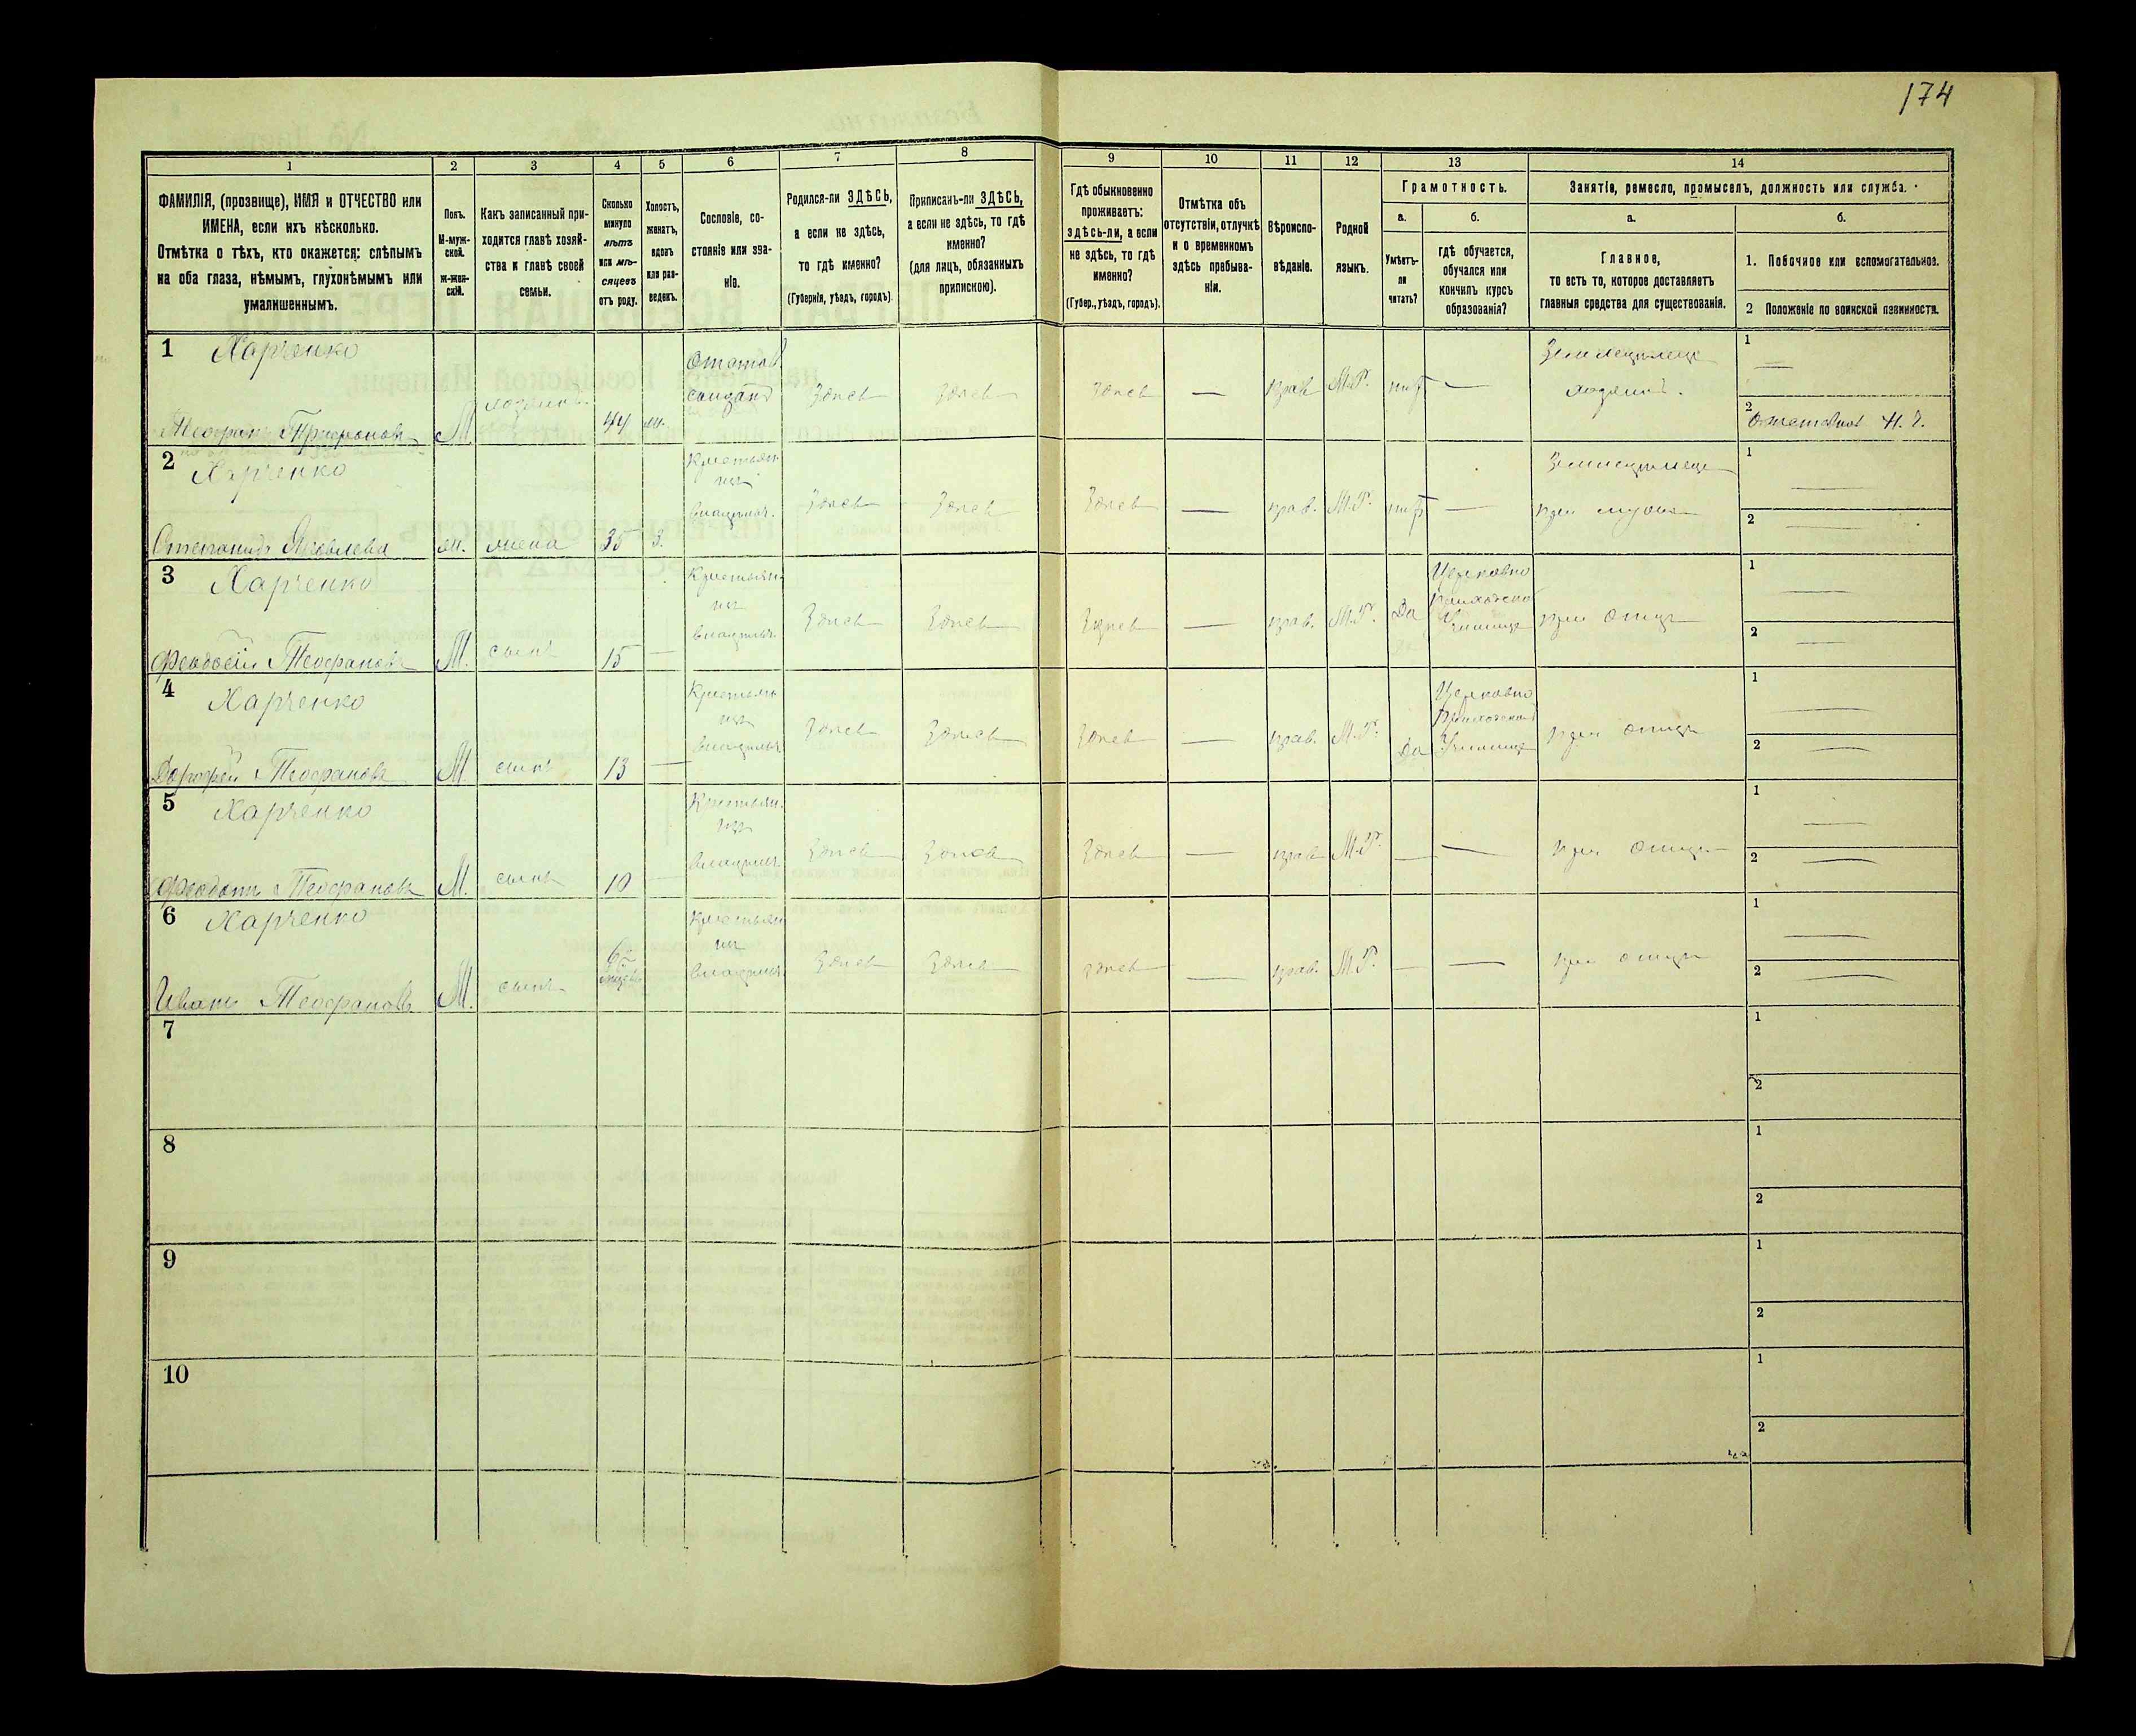 174
1
2
3
4
5
6
7
8
9
10
11
12
13
14
ФАМИЛІЯ, (прозвище), ИМЯ и ОТЧЕСТВО или
ИМЕНА, если ихъ нѣсколько.
Отмѣтка о тѣхъ, кто окажется: слѣпымъ
на оба глаза, нѣмымъ, глухонѣмымъ или
умалишеннымъ.
Полъ.
М-муж-
ской.
ж-жен-
скій.
Какъ записанный при-
ходится главѣ хозяй-
ства и главѣ своей
семьи.
Сколько
минуло
лѣтъ
или мѣ-
сяцевъ
отъ роду.
Холостъ,
женатъ,
вдовъ
или раз-
веденъ.
Сословіе, со-
стояніе или зва-
ніе.
Родился-ли ЗДѢСЬ,
а если не здѣсь,
то гдѣ именно?
(Губернія, уѣздъ, городъ)
Приписанъ-ли ЗДѢСЬ,
а если не здѣсь, то гдѣ
именно?
(для лицъ, обязанныхъ
припискою).
Гдѣ обыкновенно
проживаетъ:
здѣсь-ли, а если
не здѣсь, то гдѣ
именно?
(Губер., уѣздъ, городъ).
Отмѣтка объ
отсутствіи, отлучкѣ
и о временномъ
здѣсь пребыва-
ніи.
Вѣроиспо-
вѣданіе.
Родной
языкъ.
Грамотность.
а.
Умѣетъ-
ли
читать?
б.
гдѣ обучается,
обучался или
кончилъ курсъ
образованія?
Занятіе, ремесло, промыселъ, должность или служба.
а.
Главное,
то есть то, которое доставляетъ
главныя средства для существованія.
б.
1. Побочное или вспомогательное.
2 Положеніе по воинской повинности.
1 Харченко
Теофанъ Трифоновъ М хозяинъ 44 ж.
Здѣсь Здѣсь Здѣсь — прав. М.Р. нѣт —
Земледѣлецъ
хозяинъ.
1
2
2 Харченко
Степанида Яковлева ж. жена 35 з.
Крестьян
изъ
владѣльч.
Здѣсь Здѣсь Здѣсь — прав. М.Р. нѣт —
Земледѣлецъ
при мужѣ
1 —
2 —
3 Харченко
Феодосій Теофановъ М. сынъ 15 —
Крестьян
изъ
владѣльч.
Здѣсь Здѣсь Здѣсь — прав. М.Р. Да
Церковно
Приходское
Училище
при отцѣ
1 —
2 —
4 Харченко
Дорофей Теофановъ М. сынъ 13 —
Крестьян
изъ
владѣльч.
Здѣсь Здѣсь Здѣсь — прав. М.Р. Да
Церковно
Приходское
Училище
при отцѣ
1 —
2 —
5 Харченко
Феодотъ Теофановъ М. сынъ 10 —
Крестьян
изъ
владѣльч.
Здѣсь Здѣсь Здѣсь — прав. М.Р. — —
при отцѣ
1 —
2 —
6 Харченко
Иванъ Теофановъ М. сынъ
Крестьян
изъ
владѣльч.
Здѣсь Здѣсь Здѣсь — прав. М.Р. — —
при отцѣ
1 —
2 —
7
1
2
8
1
2
9
1
2
10
1
2